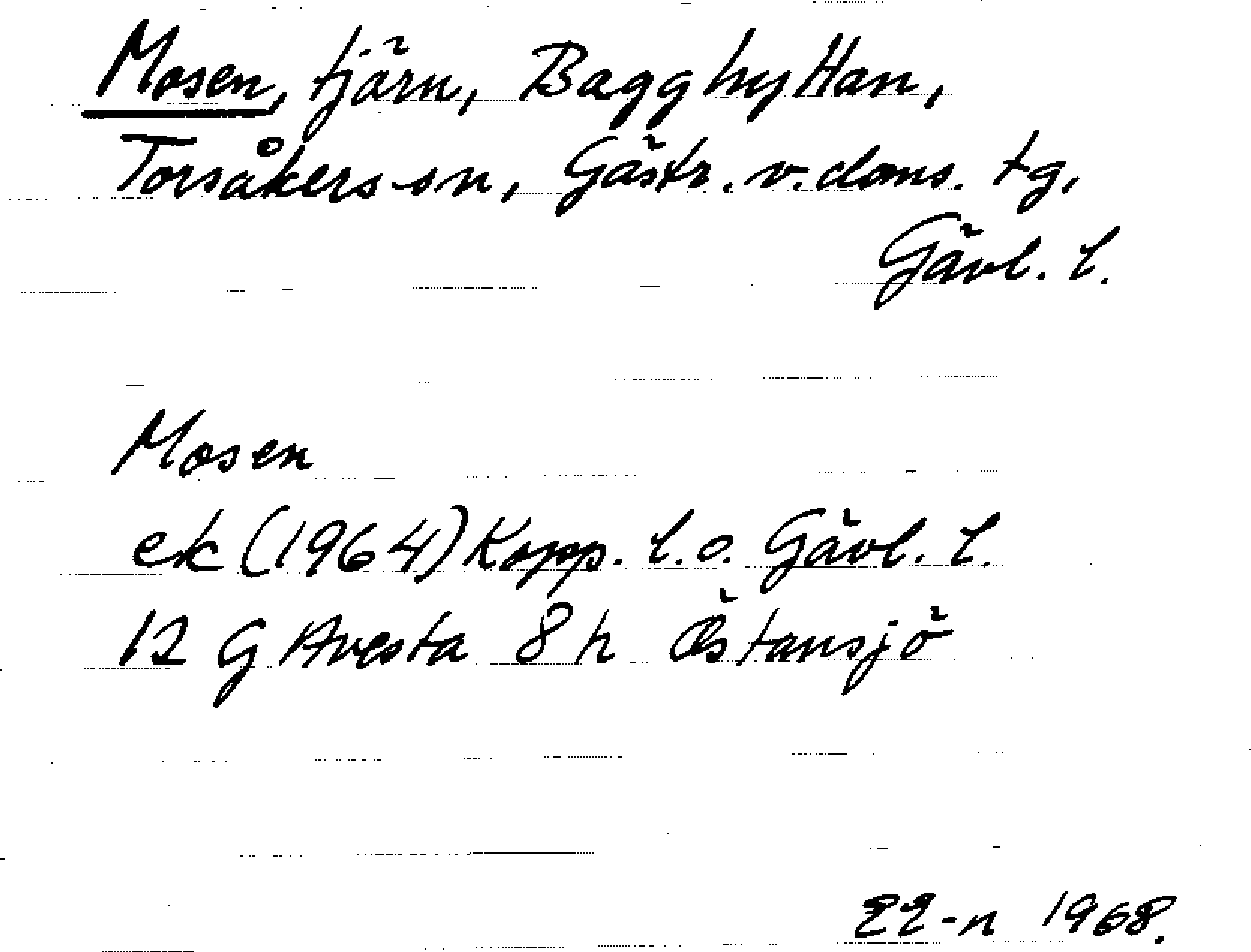 Mosen, tjärn, Bagghyttan,
Torsåkers sn, Gästr. v. doms. tg,
Gävl. l.
Mosen
ek (1964) Kopp. l. o. Gävl. l.
12 G Avesta 8 h Östansjö
1968.